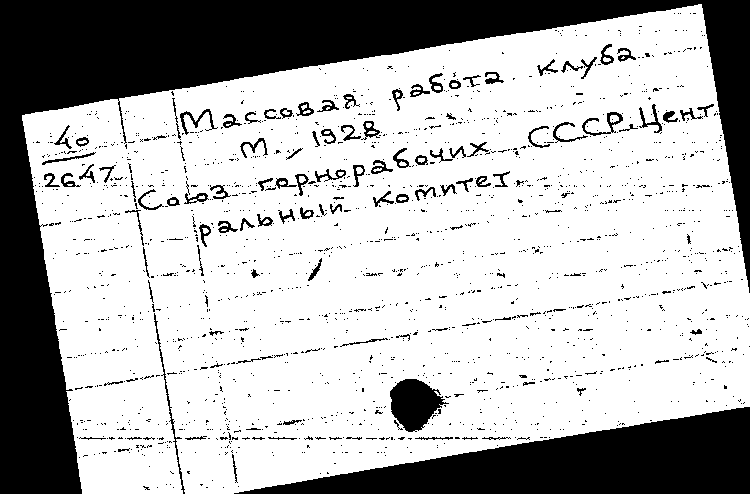 Массовая работа клуба.
40
М., 1928
2647
Союз горнорабочих СССР. Цент
ральный комитет.